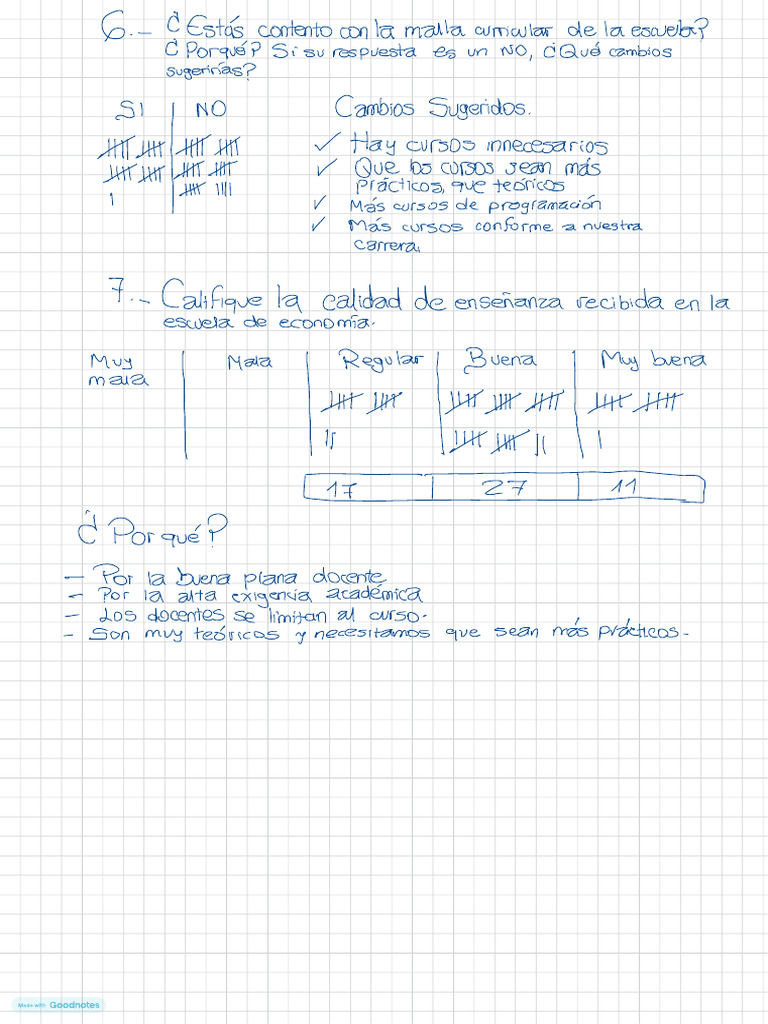 6.- ¿Estás contento con la malla curricular de la escuela?
¿Porqué? Si su respuesta es un NO, ¿Qué cambios
sugerirías?
SI NO Cambios Sugeridos.
✓ Hay cursos innecesarios
✓ Que los cursos sean más
prácticos, que teóricos
✓ Más cursos de programación
✓ Más cursos conforme a nuestra
carrera.
7.- Califique la calidad de enseñanza recibida en la
escuela de economía.
Muy mala Mala Regular Buena Muy buena
17 27 11
¿Por qué?
- Por la buena plana docente
- Por la alta exigencia académica
- Los docentes se limitan al curso.
- Son muy teóricos y necesitamos que sean más prácticos.
Made with Goodnotes